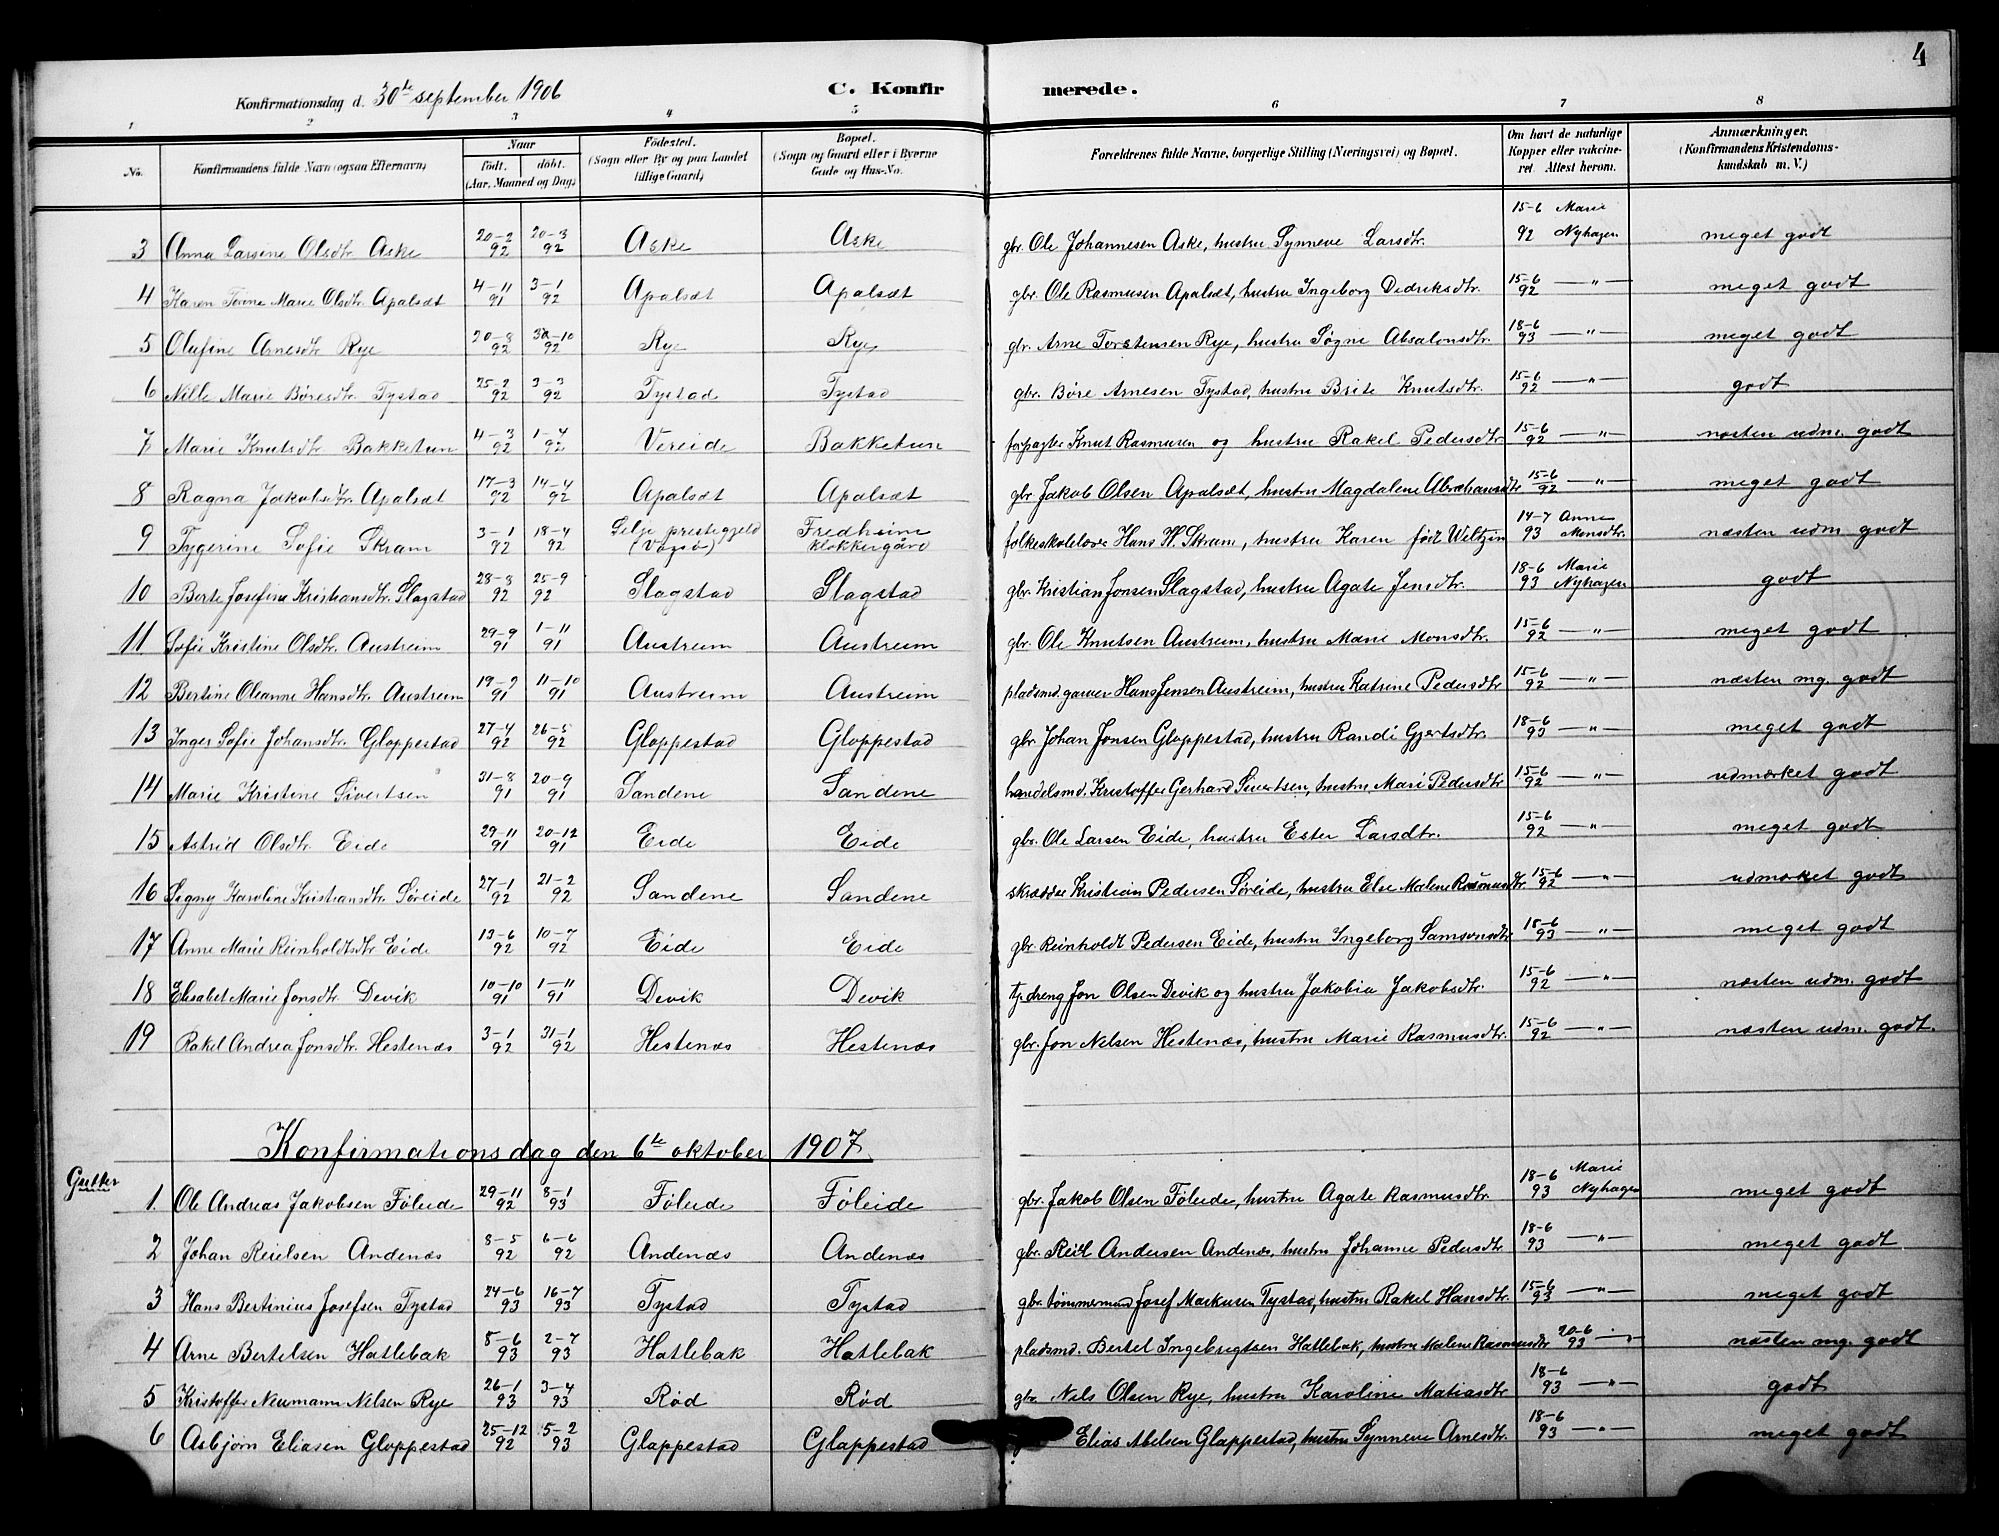 4
Konfirmationsdag d. 30te september 1906
C. Konfirmerede.
1 2 3 4 5 6 7 8
No. Konfirmandens fulde Navn (ogsaa Efternavn) Naar født. døbt. (Aar, Maaned og Dag) Fødested. (Sogn eller By og paa Landet tillige Gaard) Bopæl. (Sogn og Gaard eller i Byerne Gade og Hus-No. Forældrenes fulde Navne, borgerlige Stilling (Næringsvei) og Bopæl. Om havt de naturlige Kopper eller vakcineret. Attest herom. Anmærkninger. (Konfirmandens Kristendomskundskab m. V.)
3 Anna Larsine Olsdtr. Aske 20-2 92 20-3 92 Aske Aske gbr. Ole Johannesen Aske, hustru Synneve Larsdtr. 15-6 92 Marie Nyhagen meget godt
4 Karen Terine Marie Olsdtr. Apalsæt 4-11 91 3-1 92 Apalsæt Apalsæt gbr. Ole Rasmusen Apalsæt, hustru Ingeborg Dedriksdtr. 15-6 92 —"— meget godt
5 Olufine Arnesdtr. Rye 20-8 92 30-10 92 Rye Rye gbr. Arne Torstensen Rye, hustru Søgni Absalonsdtr. 18-6 93 —"— meget godt
6 Nille Marie Børesdtr. Tystad 25-2 92 3-3 92 Tystad Tystad gbr. Børe Arnesen Tystad, hustru Brite Knutsdtr. 15-6 92 —"— godt
7 Marie Knutsdtr. Bakketun 4-3 92 1-4 92 Vereide Bakketun forpagter Knut Rasmusen og hustru Rakel Pedersdtr. 15-6 92 —"— næsten udm. godt
8 Ragna Jakobsdtr. Apalsæt 17-3 92 14-4 92 Apalsæt Apalsæt gbr. Jakob Olsen Apalsæt, hustru Magdalene Abrahamsdtr 15-6 92 —"— meget godt
9 Tygerine Sofie Skram 3-1 92 18-4 92 Selje prestegjeld (Vågsø) Fredheim klokkergård folkeskolelærer Hans H. Skram, hustru Karen født Weltzin 14-7 93 Anne Monsdtr. næsten udm. godt
10 Berte Josefine Kristiansdtr. Slagstad 28-8 92 25-9 92 Slagstad Slagstad gbr. Kristian Jonsen Slagstad, hustru Agate Jensdtr. 18-6 93 Marie Nyhagen godt
11 Sofie Kristine Olsdtr. Austreim 29-9 91 1-11 91 Austreim Austreim gbr. Ole Knutsen Austreim, hustru Marie Monsdtr. 15-6 92 —"— meget godt
12 Bertine Oleanne Hansdtr. Austreim 19-9 91 11-10 91 Austreim Austreim pladsmd. garver Hans Jensen Austreim, hustru Katrine Pedersdtr 15-6 92 —"— næsten mg. godt
13 Inger Sofie Johansdtr. Gloppestad 27-4 92 26-5 92 Gloppestad Gloppestad gbr. Johan Jonsen Gloppestad, hustru Randi Gjertsdtr. 18-6 93 —"— meget godt
14 Marie Kristine Sivertsen 31-8 91 20-9 91 Sandene Sandene handelsmd. Kristoffer Gerhard Sivertsen, hustru Mari Pedersdtr 15-6 92 —"— udmærket godt
15 Astrid Olsdtr. Eide 29-11 91 20-12 91 Eide Eide gbr. Ole Larsen Eide, hustru Ester Larsdtr. 15-6 92 —"— meget godt
16 Signy Karoline Kristiansdtr. Søreide 27-1 92 21-2 92 Sandene Sandene skrædder Kristian Pedersen Søreide, hustru Else Malene Rasmusdtr 15-6 92 —"— udmærket godt
17 Anne Marie Reinholdtsdtr. Eide 13-6 92 10-7 92 Eide Eide gbr. Reinholdt Pedersen Eide, hustru Ingeborg Samsonsdtr 18-6 93 —"— meget godt
18 Elisabet Marie Jonsdtr. Devik 10-10 91 1-11 91 Devik Devik tj.dreng Jon Olsen Devik og hustru Jakobia Jakobsdtr. 15-6 92 —"— næsten udm. godt
19 Rakel Andrea Jonsdtr. Hestenæs 3-1 92 31-1 92 Hestenæs Hestenæs gbr. Jon Nelsen Hestenæs, hustru Marie Rasmusdtr. 15-6 92 —"— næsten udm. godt.
Konfirmationsdag den 6te oktober 1907
Gutter
1. Ole Andreas Jakobsen Føleide 29-11 92 8-1 93 Føleide Føleide gbr. Jakob Olsen Føleide, hustru Agate Rasmusdtr. 18-6 93 Marie Nyhagen meget godt
2 Johan Reielsen Andenæs 8-5 92 6-6 92 Andenæs Andenæs gbr. Reiel Andersen Andenæs, hustru Johanne Pedersdtr 18-6 93 —"— meget godt
3 Hans Bertinius Josefsen Tystad 24-6 93 16-7 93 Tystad Tystad gbr. tømmermand Josef Markusen Tystad, hustru Rakel Hansdtr. 15-6 93 —"— meget godt
4 Arne Bertelsen Hatlebak 8-6 93 2-7 93 Hatlebak Hatlebak pladsmd. Bertel Ingebrigtsen Hatlebak, hustru Malene Rasmusdtr 20-6 93 —"— næsten mg. godt
5 Kristoffer Neumann Nelsen Rye 26-1 93 3-4 93 Rød Rød gbr. Nels Olsen Rye, hustru Karoline Matiasdtr 18-6 93 —"— godt
6 Asbjørn Eliasen Gloppestad 25-12 92 5-2 93 Gloppestad Gloppestad Elias Abelsen Gloppestad, hustru Synneve Arnesdtr. 18-6 93 —"— meget godt